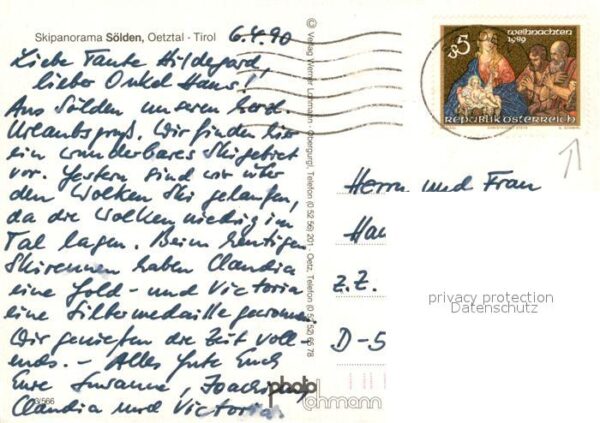 Skipanorama Sölden, Oetztal - Tirol
6.4.90
Liebe Tante Hildegard,
lieber Onkel Hans!
Aus Sölden unseren herzl.
Urlaubsgruß. Wir finden hier
ein wunderbares Skigebiet
vor. Gestern sind wir über
den Wolken Ski gelaufen,
da die Wolken niedrig im
Tal lagen. Beim heutigen
Skirennen haben Claudia
eine Gold- und Victoria
eine Silbermedaille gewonnen.
Wir genießen die Zeit voll-
ends. - Alles Gute Euch
Eure Susanne, Joachim,
Claudia und Victoria.
3/566
photo
lohmann
© Verlag Werner Lohmann, Obergurgl, Telefon (0 52 56) 201 · Oetz, Telefon (0 52 52) 66 78
S5
Weihnachten
1989
REPUBLIK ÖSTERREICH
Herrn und Frau
Han
z.Z.
D-5
privacy protection
Datenschutz